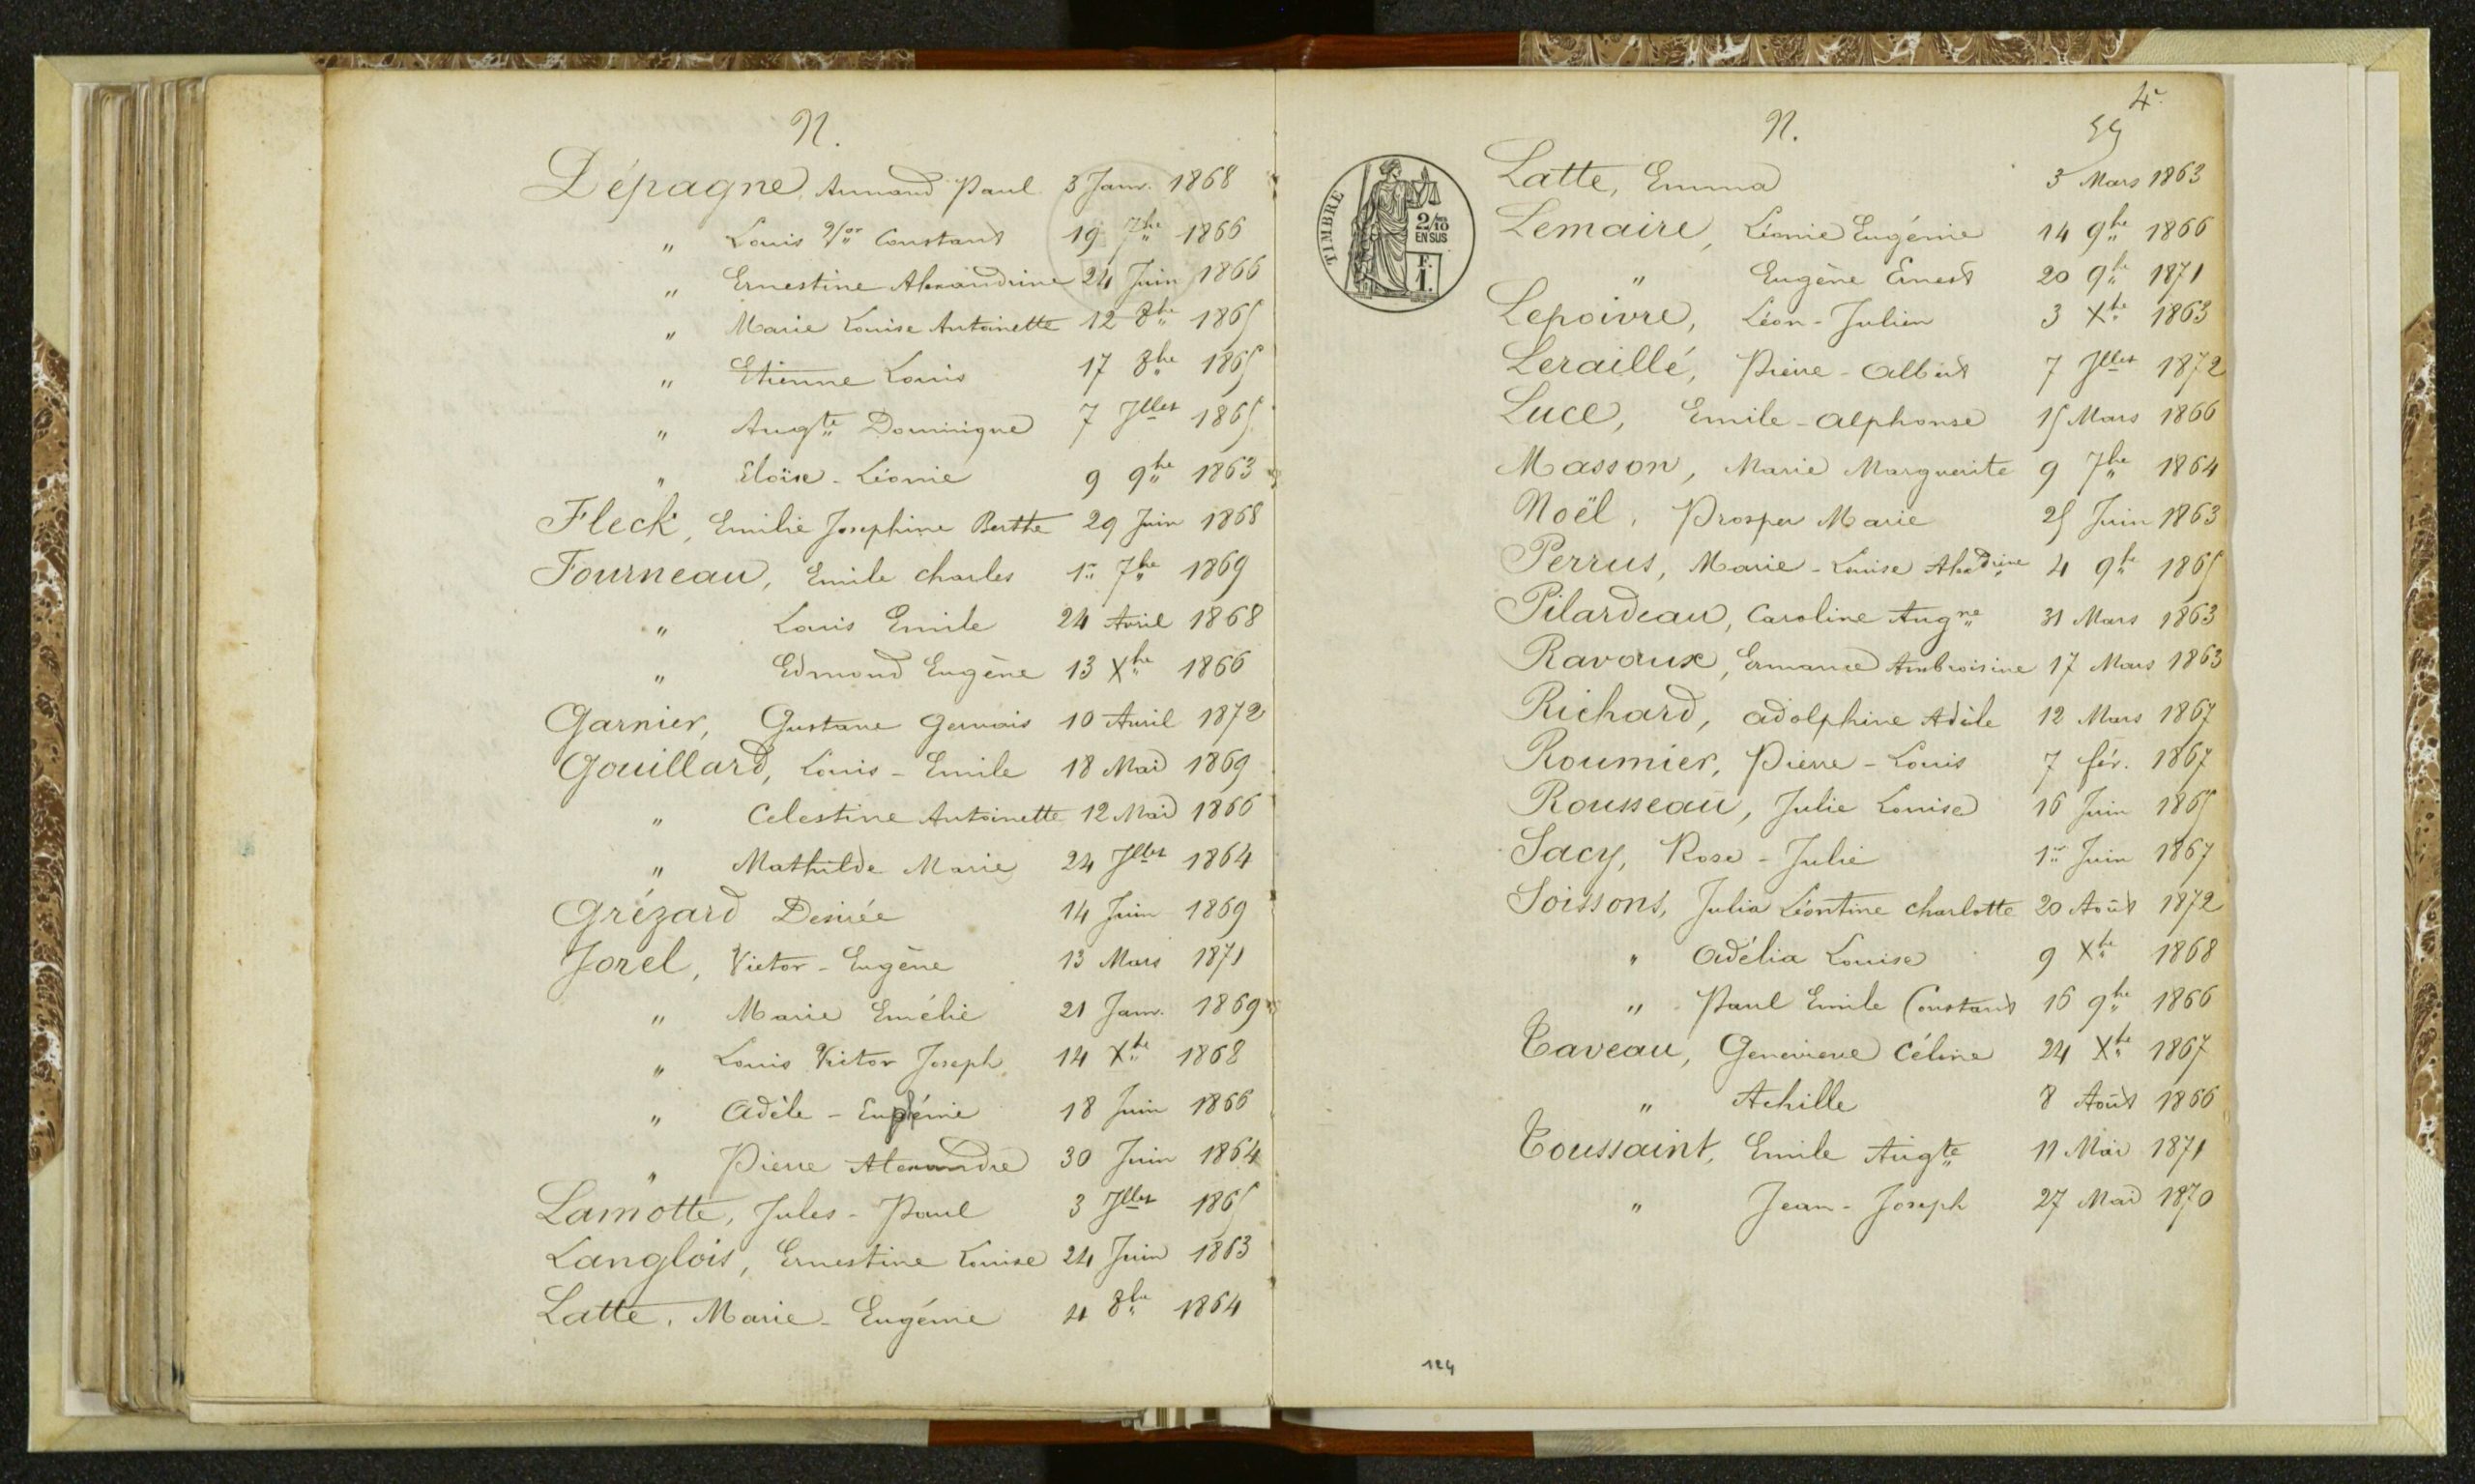 N.
Dépagne, Armand Paul 3 Janv. 1868
" Louis Vor Constant 19 7bre 1866
" Ernestine Alexandrine 24 Juin 1866
" Marie Louise Antoinette 12 8bre 1865
" Etienne Louis 17 8bre 1865
" Augte Dominique 7 Jllet 1865
" Eloïse - Léonie 9 9bre 1863
Fleck, Emilie Josephine Berthe 29 Juin 1868
Fourneau, Emile Charles 1er 7bre 1869
" Louis Emile 24 Avril 1868
" Edmond Eugène 13 Xbre 1866
Garnier, Gustave Gervais 10 Avril 1872
Gouillard, Louis - Emile 18 Mai 1869
" Celestine Antoinette 12 Mai 1866
" Mathilde Marie 24 Jllet 1864
Grézard Desirée 14 Juin 1869
Jorel, Victor - Eugène 13 Mars 1871
" Marie Emélie 21 Janv. 1869
" Louis Victor Joseph 14 Xbre 1868
" Adèle - Euphémie 18 Juin 1866
" Pierre Alexandre 30 Juin 1864
Lamotte, Jules - Paul 3 Jllet 1865
Langlois, Ernestine Louise 24 Juin 1863
Latte, Marie - Eugénie 4 8bre 1864
4e
N. 59
TIMBRE
2/10
EN SUS
F.
1.
Latte, Emma 3 Mars 1863
Lemaire, Léonie Eugénie 14 9bre 1866
" Eugène Ernest 20 9bre 1871
Lepoivre, Léon - Julien 3 Xbre 1863
Leraillé, Pierre - Albert 7 Jllet 1872
Luce, Emile - Alphonse 15 Mars 1866
Masson, Marie Marguerite 9 7bre 1864
Noël, Prosper Marie 25 Juin 1863
Perrus, Marie - Louise Alexdrine 4 9bre 1865
Pilardeau, Caroline Augne 31 Mars 1863
Ravaux, Ermance Ambroisine 17 Mars 1863
Richard, Adolphine Adèle 12 Mars 1867
Roumier, Pierre - Louis 7 fév. 1867
Rousseau, Julie Louise 16 Juin 1865
Sacy, Rose - Julie 1er Juin 1867
Soissons, Julia Léontine Charlotte 20 Août 1872
" Adélia Louise 9 Xbre 1868
" Paul Emile Constant 16 9bre 1866
Taveau, Genevieve Céline 24 Xbre 1867
" Achille 8 Août 1866
Toussaint, Emile Augte 11 Mai 1871
" Jean - Joseph 27 Mai 1870
124